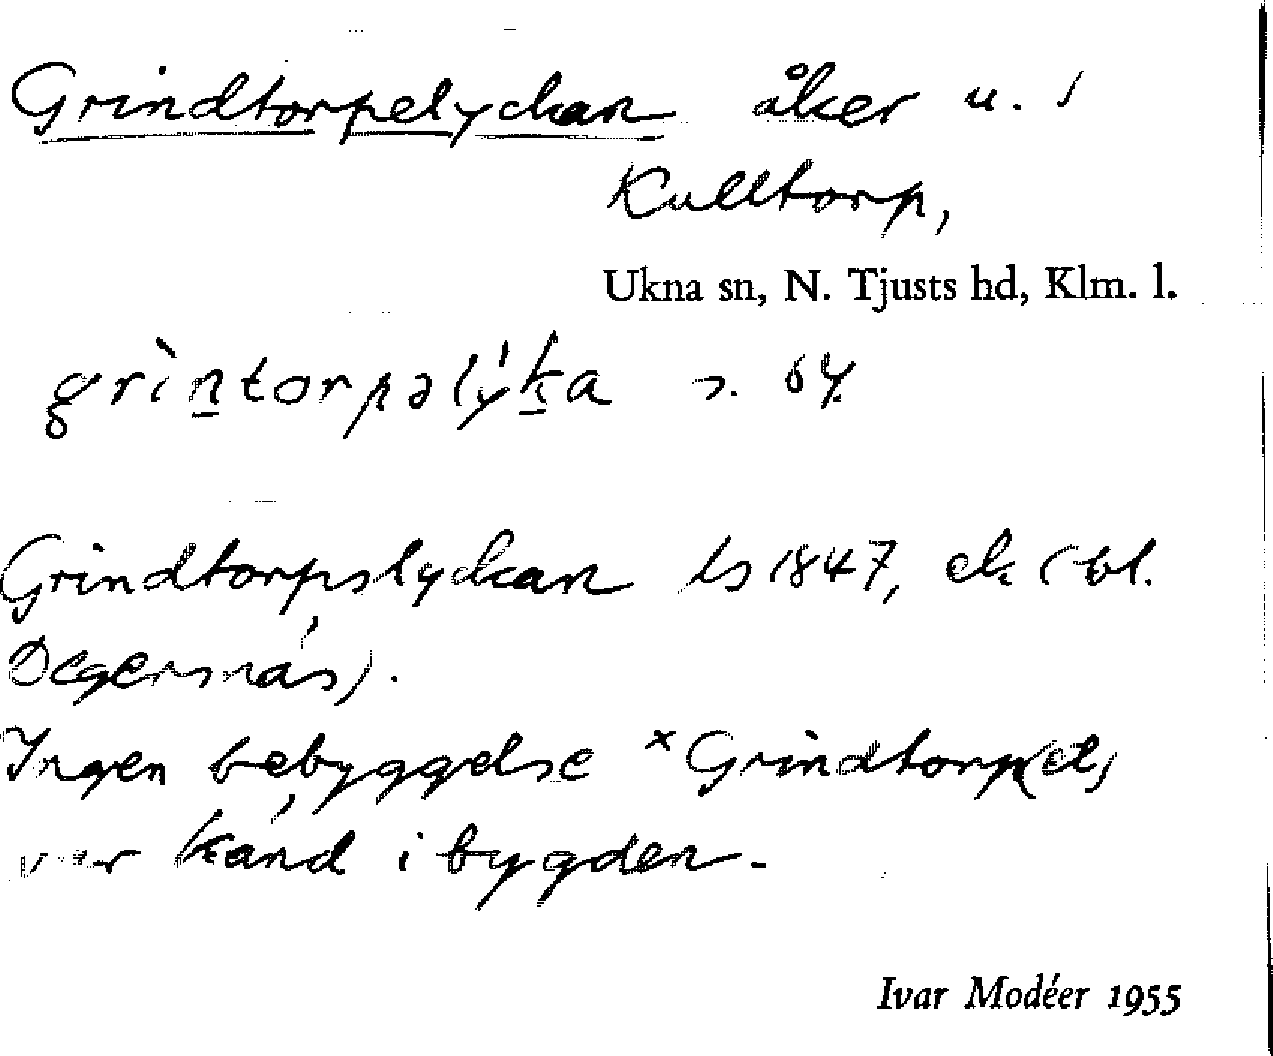 Grindtorpelyckan åker u. 1
Kulltorp,
Ukna sn, N. Tjusts hd, Klm. l.
grìn̲torpəlýk̲a
Grindtorpslyckan ls 1847, ek (bl.
Degersnäs).
Ingen bebyggelse × Grindtorp(et)
var känd i bygden.
Ivar Modéer 1955